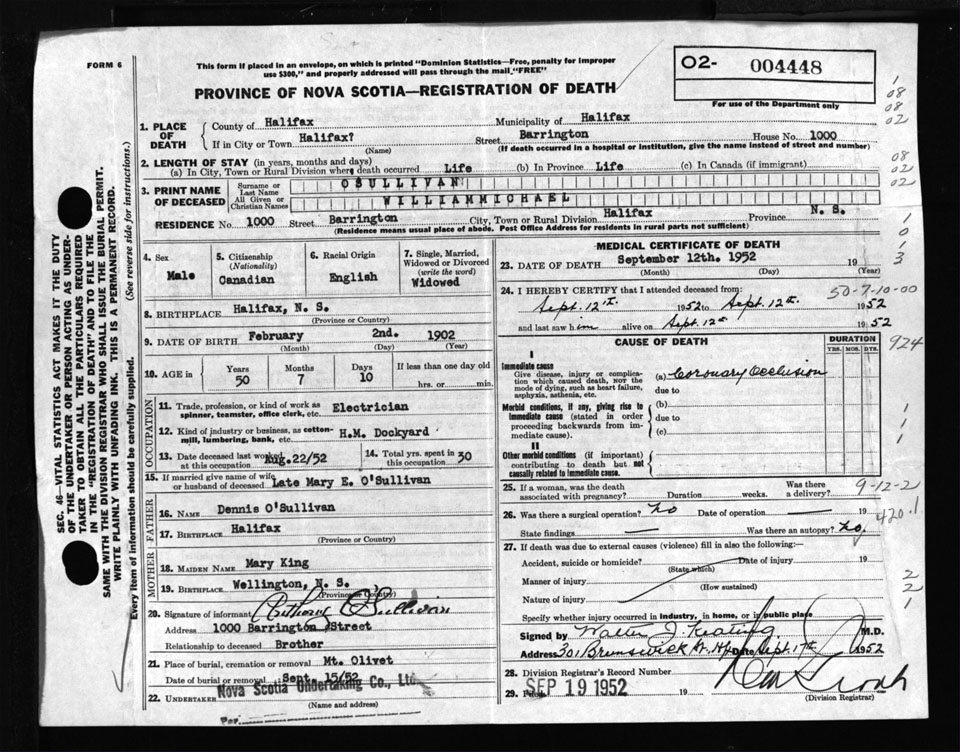 FORM 6
This form if placed in an envelope, on which is printed "Dominion Statistics—Free, penalty for improper
use $300," and properly addressed will pass through the mail "FREE"
PROVINCE OF NOVA SCOTIA—REGISTRATION OF DEATH
02- 004448
For use of the Department only
1. PLACE OF DEATH
County of Halifax Municipality of Halifax
If in City or Town Halifax? Street Barrington House No. 1000
(Name) (If death occurred in a hospital or institution, give the name instead of street and number)
2. LENGTH OF STAY (in years, months and days)
(a) In City, Town or Rural Division where death occurred Life (b) In Province Life (c) In Canada (if immigrant)
3. PRINT NAME OF DECEASED
Surname or Last Name OSULLIVAN
All Given or Christian Names WILLIAMMICHAEL
RESIDENCE No. 1000 Street Barrington City, Town or Rural Division Halifax Province N. S.
(Residence means usual place of abode. Post Office Address for residents in rural parts not sufficient)
4. Sex
Male
5. Citizenship
(Nationality)
Canadian
6. Racial Origin
English
7. Single, Married,
Widowed or Divorced
(write the word)
Widowed
8. BIRTHPLACE Halifax, N. S.
(Province or Country)
9. DATE OF BIRTH February 2nd. 1902
(Month) (Day) (Year)
10. AGE in Years 50 Months 7 Days 10 If less than one day old
hrs. or min.
OCCUPATION
11. Trade, profession, or kind of work as
spinner, teamster, office clerk, etc. Electrician
12. Kind of industry or business, as cotton-
mill, lumbering, bank, etc. H.M. Dockyard
13. Date deceased last worked
at this occupation Aug.22/52
14. Total yrs. spent in
this occupation 30
15. If married give name of wife
or husband of deceased Late Mary E. O'Sullivan
FATHER
16. NAME Dennis O'Sullivan
17. BIRTHPLACE Halifax
(Province or Country)
MOTHER
18. MAIDEN NAME Mary King
19. BIRTHPLACE Wellington, N. S.
(Province or Country)
20. Signature of informant Anthony O'Sullivan
Address 1000 Barrington Street
Relationship to deceased Brother
21. Place of burial, cremation or removal Mt. Olivet
Date of burial or removal Sept. 15/52
22. UNDERTAKER Nova Scotia Undertaking Co., Ltd.
(Name and address)
Per
MEDICAL CERTIFICATE OF DEATH
23. DATE OF DEATH September 12th. 1952 19
(Month) (Day) (Year)
24. I HEREBY CERTIFY that I attended deceased from:
Sept. 12th 1952 to Sept. 12th 1952
and last saw him alive on Sept. 12th 1952
CAUSE OF DEATH
DURATION
YRS. MOS. DYS.
I
Immediate cause
Give disease, injury or complica-
tion which caused death, NOT the
mode of dying, such as heart failure,
asphyxia, asthenia, etc.
(a) Coronary Occlusion
due to
Morbid conditions, if any, giving rise to
immediate cause (stated in order
proceeding backwards from im-
mediate cause).
(b)
due to
(c)
II
Other morbid conditions (if important)
contributing to death but not
causally related to immediate cause.
25. If a woman, was the death
associated with pregnancy? Duration weeks. Was there
a delivery?
26. Was there a surgical operation? No Date of operation 19
State findings Was there an autopsy? No.
27. If death was due to external causes (violence) fill in also the following:—
Accident, suicide or homicide? Date of injury 19
(State which)
Manner of injury
(How sustained)
Nature of injury
Specify whether injury occurred in industry, in home, or in public place
Signed by Walter J. Keating M.D.
Address 301 Brunswick St. Hfx Date Sept. 17th 1952
28. Division Registrar's Record Number
29. Filed SEP 19 1952 19
(Division Registrar)
SEC. 46—VITAL STATISTICS ACT MAKES IT THE DUTY
OF THE UNDERTAKER OR PERSON ACTING AS UNDER-
TAKER TO OBTAIN ALL THE PARTICULARS REQUIRED
IN THE "REGISTRATION OF DEATH" AND TO FILE THE
SAME WITH THE DIVISION REGISTRAR WHO SHALL ISSUE THE BURIAL PERMIT.
WRITE PLAINLY WITH UNFADING INK. THIS IS A PERMANENT RECORD.
Every item of information should be carefully supplied. (See reverse side for instructions.)
1
08
08
02
08
02
02
1
0
1
3
50-7-10-00
924
1
1
1
9-12-2
420.1
2
2
1